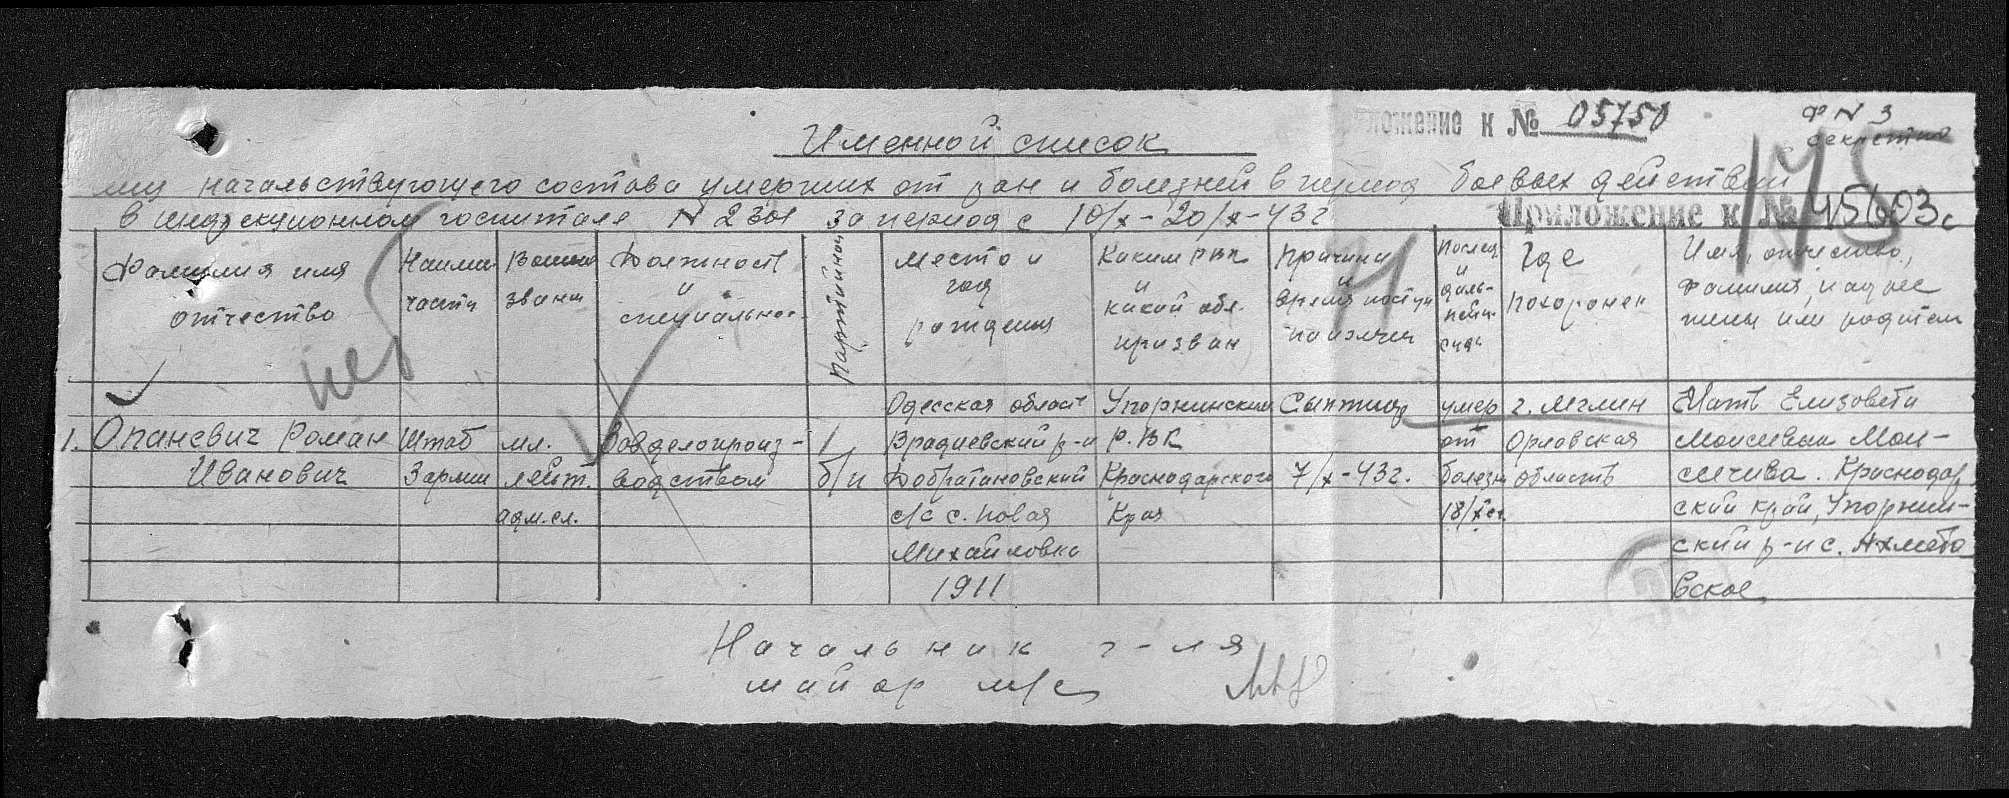 ложение к № 05750
Ф N 3
секретно
Именной список
начальствующего состава умерших от ран и болезней в период боевых действий
в инфекционном госпитале N 2301 за период с 10/X-20/X-43г
Приложение к № 45603с
145
нет
Фамилия имя отчество
Наимен части
Военно звани
Должность и специальнос.
Партийность
Место и год рождения
Каким рвк и какой обл. призван
Причина и время поступ на излечен
Послед и даль-нейш.
Где похоронен
Имя, отчество, фамилия, и адрес жены или родител
1. Опаневич Роман Иванович
Штаб 3 армии
мл. лейт. адм.сл.
Завделопроиз-водством
б/п
Одесская област Врадиевский р-н Добратановский с/с с. Новая Михайловка 1911
Упорнинским Р.ВК Краснодарского Края
Сыпнтиф 7/X-43г.
умер от болезн 18/X
г. Мглин Орловская область
Мать Елизовета Моисеевна Краснодар ский край, Упорнин-ский р-н с. Ахмето вское
Начальник г-ля
майор м/с